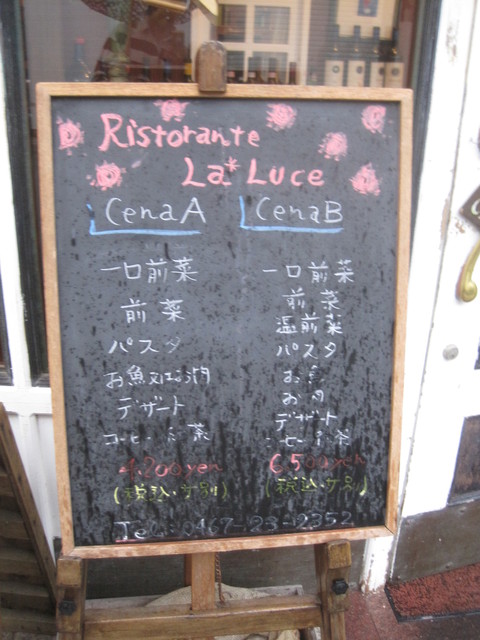 Ristorante
La Luce
Cena A
一口前菜
前菜
パスタ
お魚又はお肉
デザート
コーヒー 茶
4,200yen
(税込・サ別)
Cena B
一口前菜
前菜
温前菜
パスタ
お魚
お肉
デザート
コーヒー 茶
6,500yen
(税込・サ別)
Tel: 0467-23-2352